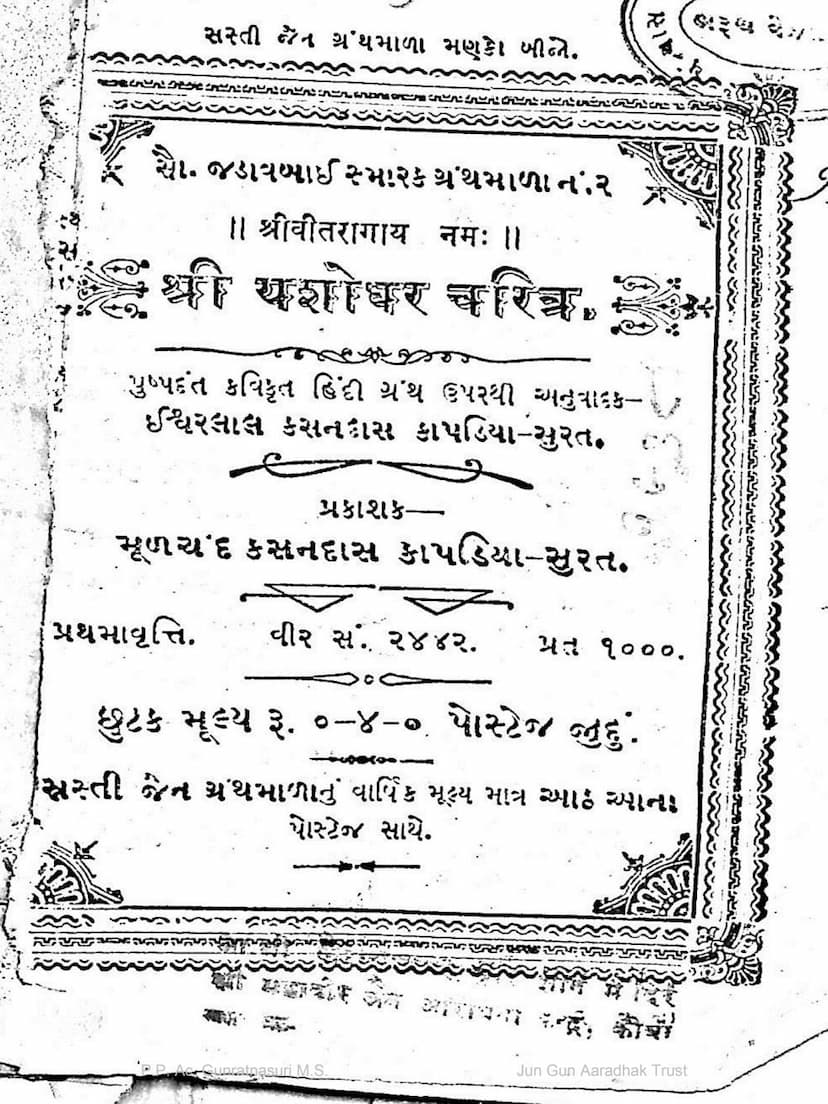 સસ્તી જૈન ગ્રંથમાળા મણકો બીજો.
સૌ. જડાવબાઈ સ્મારક ગ્રંથમાળા નં. ૨
॥ श्रीवीतरागाय नमः ॥
શ્રી યશોધર ચરિત્ર.
પુષ્પદંત કવિકૃત હિંદી ગ્રંથ ઉપરથી અનુવાદક—
ઈશ્વરલાલ કસનદાસ કાપડિયા–સુરત.
પ્રકાશક—
મૂળચંદ કસનદાસ કાપડિયા–સુરત.
પ્રથમાવૃત્તિ. વીર સં. ૨૪૪૨. પ્રત ૧૦૦૦.
છુટક મૂલ્ય રૂ. ૦–૪–૦ પોસ્ટેજ જુદું.
સસ્તી જૈન ગ્રંથમાળાનું વાર્ષિક મૂલ્ય માત્ર આઠ આના
પોસ્ટેજ સાથે.
श्री महावीर जैन आराधना केन्द्र, कोबा
P.P. Ac. Gunratnasuri M.S. Jun Gun Aaradhak Trust